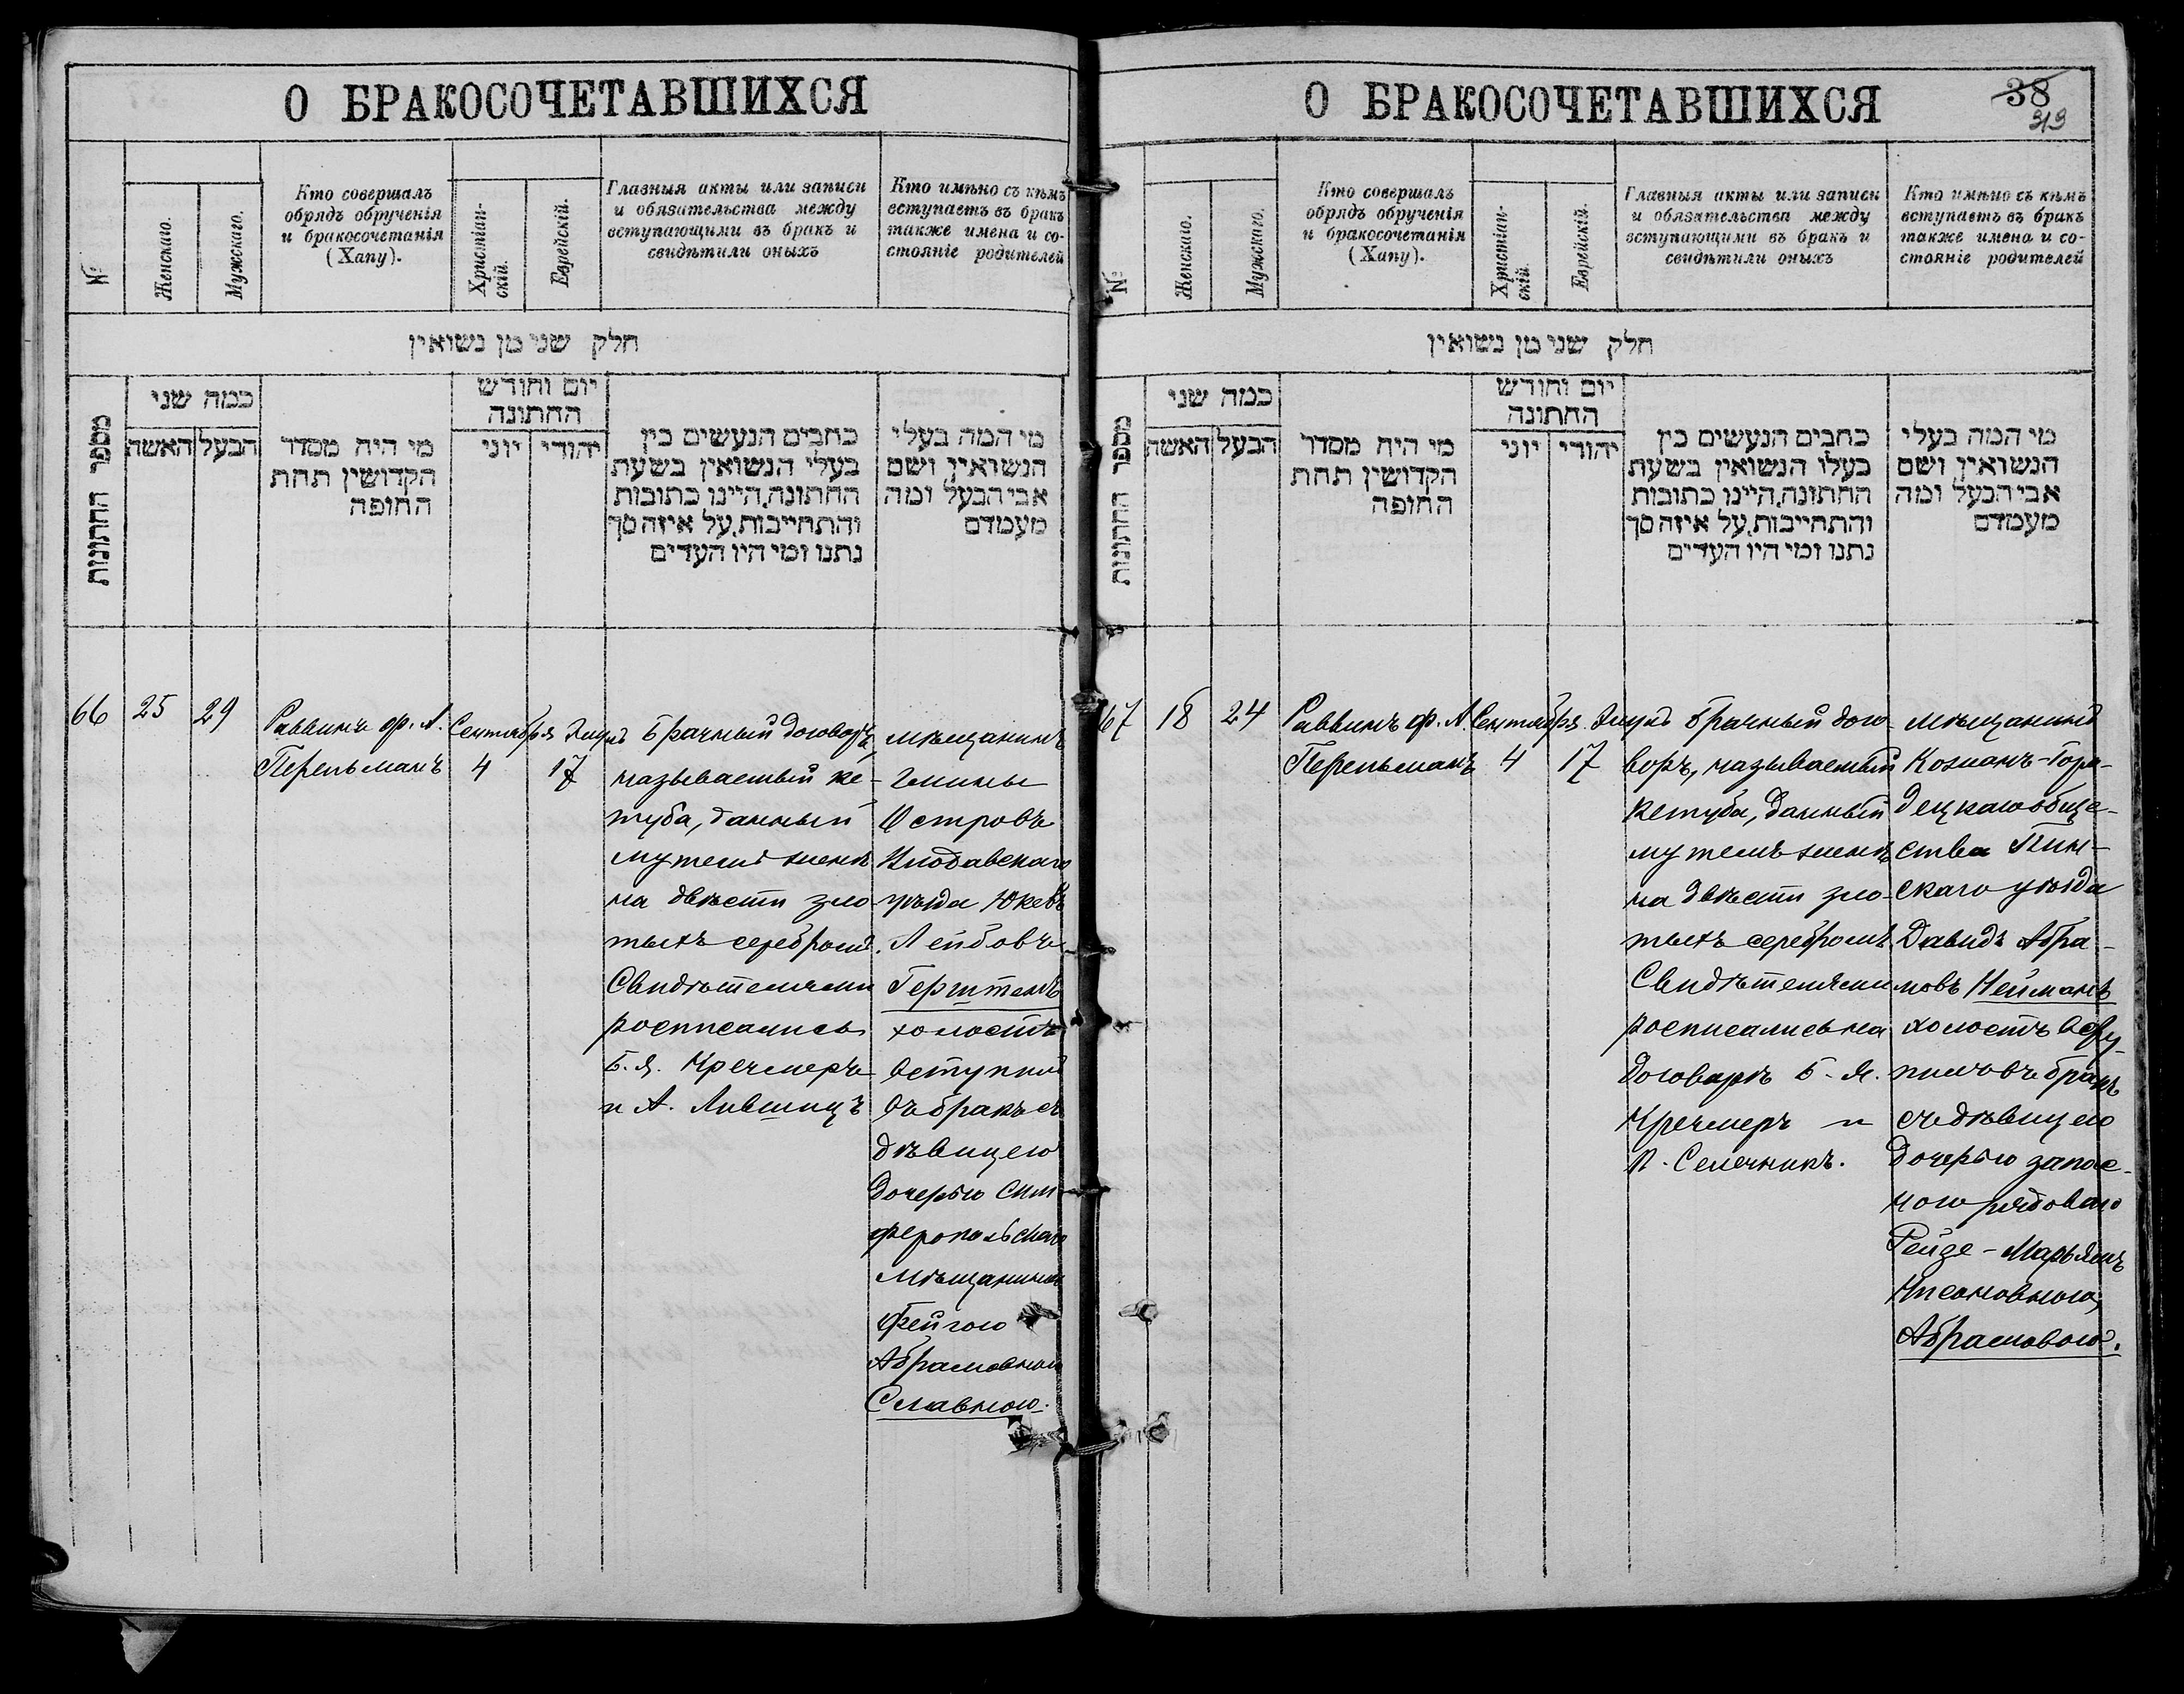 О БРАКОСОЧЕТАВШИХСЯ
№
Женскаго.
Мужскаго.
Кто совершалъ
обрядъ обрученія
и бракосочетанія
(Хапу).
Христіан-
скій.
Еврейскій.
Главныя акты или записи
и обязательства между
вступающими въ бракъ и
свидѣтили оныхъ
Кто имѣно съ кѣмъ
вступаетъ въ бракъ
также имена и со-
стояніе родителей
חלק שני מן נשואין
מספר החתונות
כמה שני
האשה
הבעל
מי היה מסדר
הקדושין תחת
החופה
יום וחודש
החתונה
יוני
יהודי
כתבים הנעשים בין
בעלי הנשואין בשעת
החתונה,היינו כתובות
והתחייבות,על איזה סך
נתנו ומי היו העדים
מי המה בעלי
הנשואין ושם
אבי הבעל ומה
מעמדם
66
25
29
Раввинъ ф. А.
Перельманъ
Сентября
4
Элулъ
17
Брачный договоръ,
называемый ке-
туба, данный
мужемъ женѣ
на двѣсти зло-
тыхъ серебромъ.
Свидѣтелями
росписались
Б. Я. Кречмеръ
и А. Лившицъ
мѣщанинъ
гмины
Островъ
Влодавскаго
уѣзда Юкевъ
Лейбовъ
Герштенъ
холостъ
вступилъ
въ бракъ съ
дѣвицею
дочерью Сим-
феропольскаго
мѣщанина
Фейгою
Абрамовною
Славною.
О БРАКОСОЧЕТАВШИХСЯ
38
№
Женскаго.
Мужскаго.
Кто совершалъ
обрядъ обрученія
и бракосочетанія
(Хапу).
Христіан-
скій.
Еврейскій.
Главныя акты или записи
и обязательства между
вступающими въ бракъ и
свидѣтили оныхъ
Кто имѣно съ кѣмъ
вступаетъ въ бракъ
также имена и со-
стояніе родителей
חלק שני מן נשואין
מספר החתונות
כמה שני
האשה
הבעל
מי היה מסדר
הקדושין תחת
החופה
יום וחודש
החתונה
יוני
יהודי
כתבים הנעשים בין
בעלו הנשואין בשעת
החתונה,היינו כתובות
והתחייבות,על איזה סך
נתנו ומי היו העדים
מי המה בעלי
הנשואין ושם
אבי הבעל ומה
מעמדם
67
18
24
Раввинъ ф. А.
Перельманъ
Сентября
4
Элулъ
17
Брачный дого-
воръ, называемый
кетуба, данный
мужемъ женѣ
на двѣсти зло-
тыхъ серебромъ
Свидѣтелями
росписались на
договорѣ Б. Я.
Кречмеръ и
П. Селечникъ.
мѣщанинъ
Кожанъ-Горо-
децкаго обще-
ства Пин-
скаго уѣзда
Давидъ Абра-
мовъ Нейманъ
холостъ всту-
пилъ въ бракъ
съ дѣвицею
дочерью запас-
ного рядоваго
Рейзе-Марьямъ
Абрамовою.